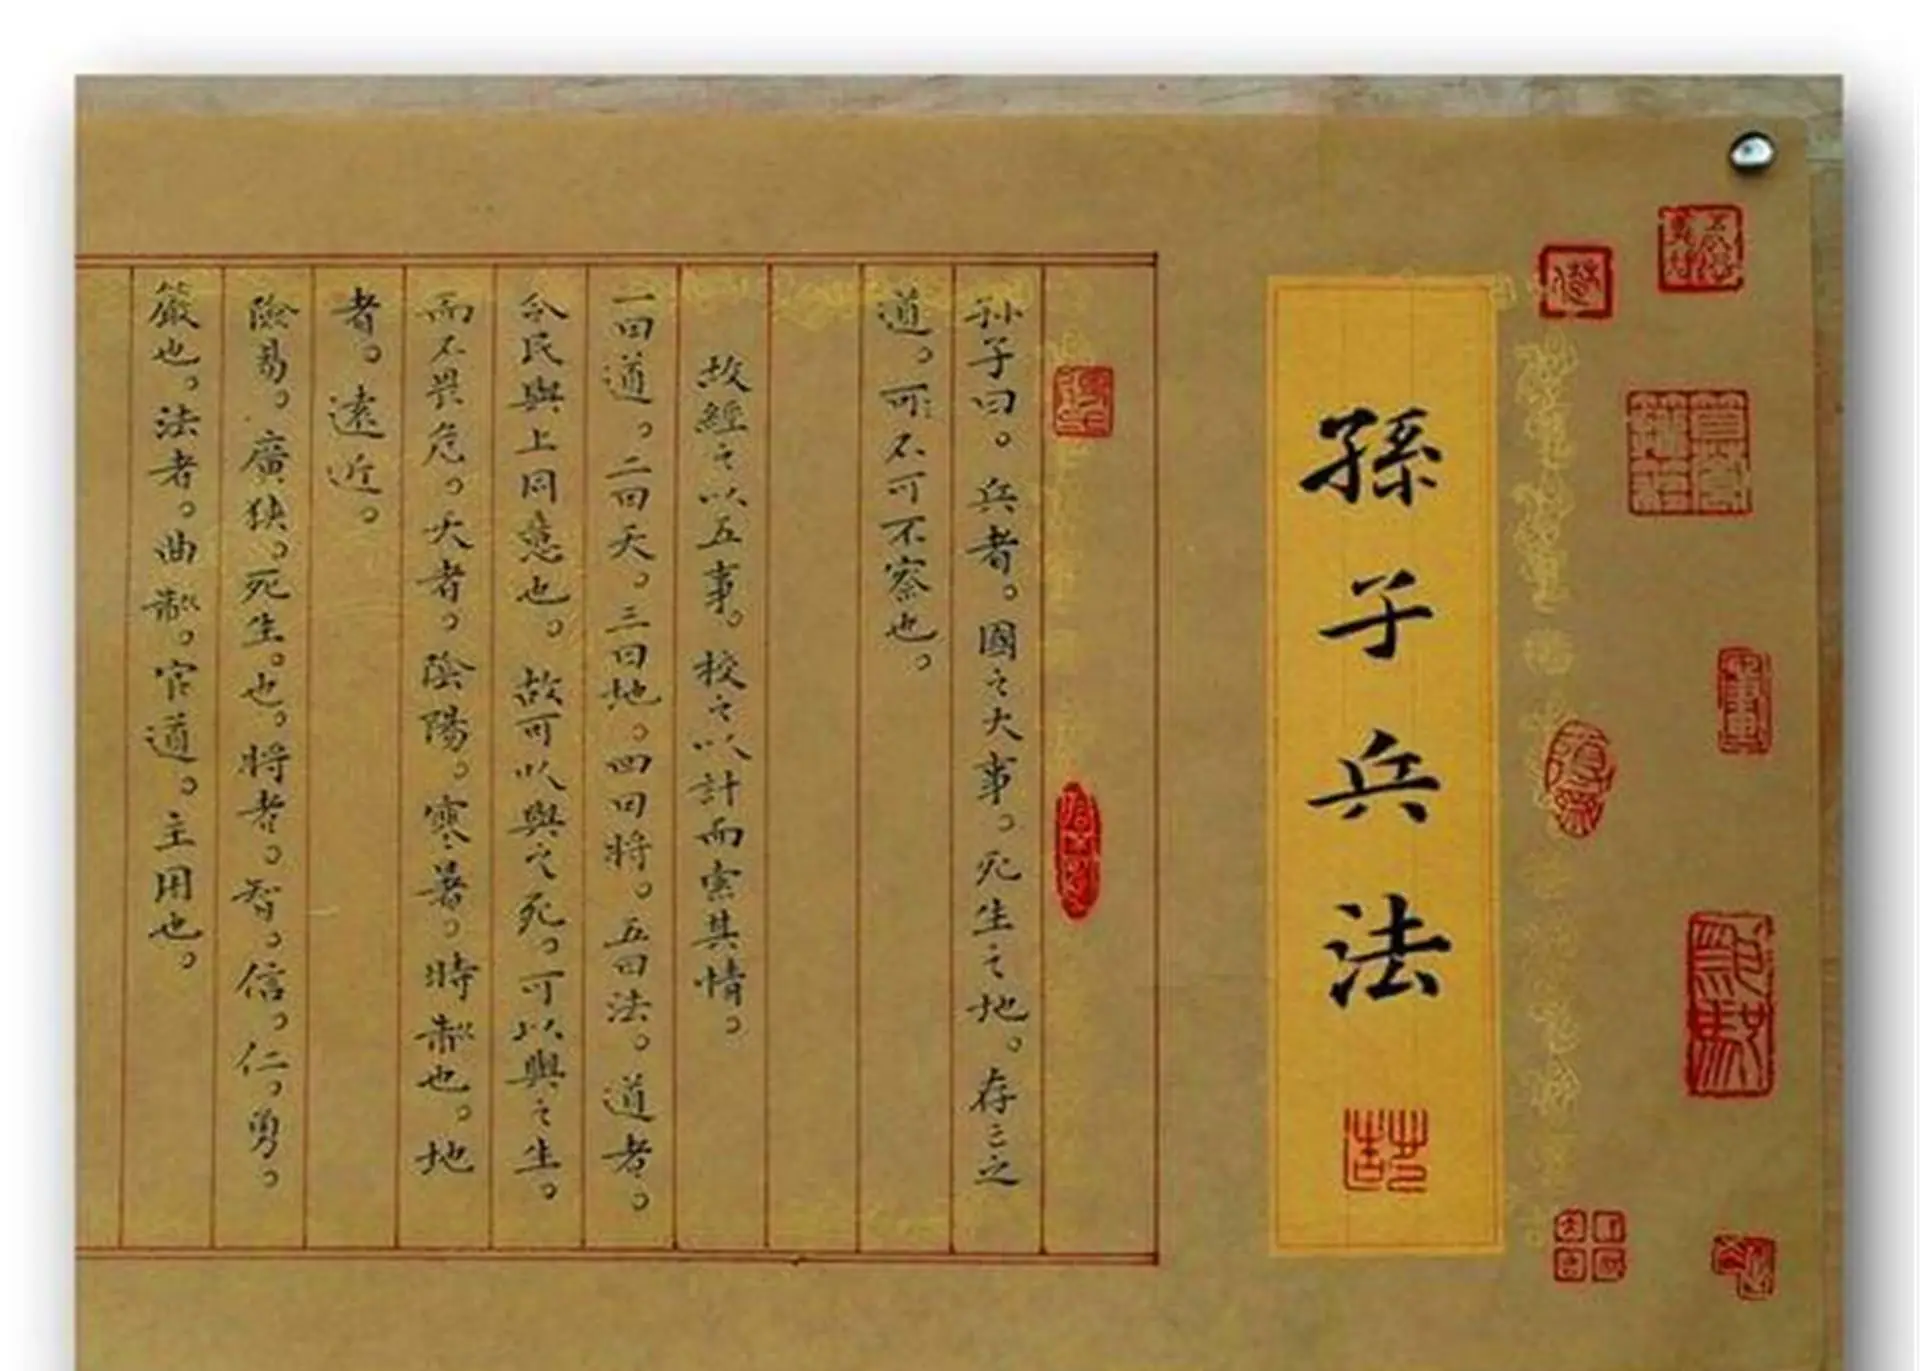 孫子兵法
孙子曰。兵者。國之大事。死生之地。存亡之
道。可不可不察也。
故經之以五事。校之以計而索其情。
一曰道。二曰天。三曰地。四曰將。五曰法。道者。
令民與上同意也。故可以與之死。可以與之生。
而不畏危。天者。陰陽。寒暑。時制也。地
者。遠近。
險易。廣狹。死生。也。將者。智。信。仁。勇。
嚴也。法者。曲制。官道。主用也。